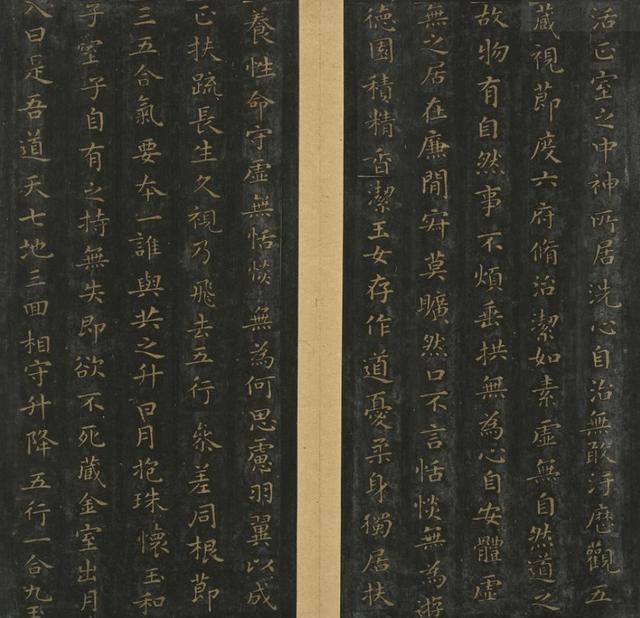 活正室之中神所居洗心自治無敢汙歷觀五
藏視節度六府脩治潔如素虛無自然道之
故物有自然事不煩垂拱無為心自安體虛
無之居在廉間寂莫曠然口不言恬惔無為游
德園積精香潔玉女存作道憂柔身獨居扶
養性命守虛無恬惔無為何思慮羽翼以成
正扶疏長生久視乃飛去五行參差同根節
三五合氣要本一誰與共之升日月抱珠懷玉和
子室子自有之持無失即欲不死藏金室出月
入日是吾道天七地三回相守升降五行一合九玉